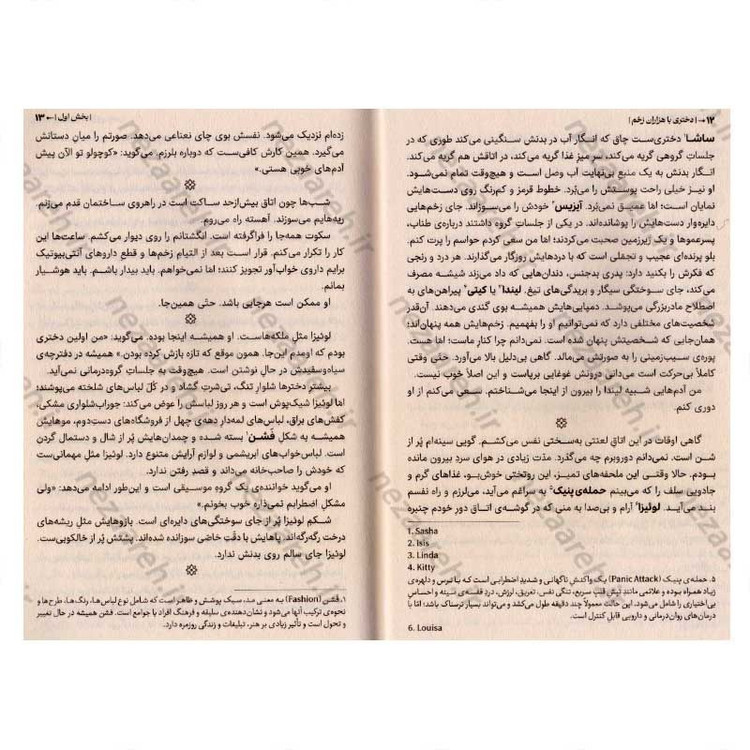 ۱۲ →| دختری با هزاران زخم |
ساشا¹ دختری‌ست چاق که انگار آب در بدنش سنگینی می‌کند طوری که در
جلساتِ گروهی گریه می‌کند، سرِ میزِ غذا گریه می‌کند، در اتاقش هم گریه می‌کند.
انگار بدنش به یک منبعِ بی‌نهایت آب وصل است و هیچ‌وقت تمام نمی‌شود.
او نیز خیلی راحت پوستش را می‌بُرد. خطوط قرمز و کم‌رنگی روی دست‌هایش
نمایان است؛ امّا عمیق نمی‌بُرد. آیزیس² خودش را می‌سوزاند. جای زخم‌هایی
دایره‌وار دست‌هایش را پوشانده‌اند. در یکی از جلساتِ گروه داشتند درباره‌ی طناب،
پسرعموها و یک زیرزمین صحبت می‌کردند؛ امّا من سعی کردم حواسم را پرت کنم.
بلو پرنده‌ای عجیب و تجمّلی است که با دردهایش روزگار می‌گذارند. هر درد و رنجی
که فکرش را بکنید دارد: پدری بدجنس، دندان‌هایی که داد می‌زند شیشه مصرف
می‌کند، جای سوختگیِ سیگار و بریدگی‌های تیغ. لیندا³ یا کیتی⁴ پیراهن‌های به
اصطلاح مادربزرگی می‌پوشد. دمپایی‌هایش همیشه بوی گندی می‌دهند. آن‌قدر
شخصیت‌های مختلفی دارد که نمی‌توانیم او را بفهمیم. زخم‌هایش همه پنهان‌اند؛
همان‌جایی که شخصیتش پنهان شده است. نمی‌دانم چرا کنارِ ماست؛ امّا هست.
پوره‌ی سیب‌زمینی را به صورتش می‌مالد. گاهی بی‌دلیل بالا می‌آورد. حتی وقتی
کاملاً بی‌حرکت است می‌دانی درونش غوغایی برپاست و این اصلاً خوب نیست.
من آدم‌هایی شبیه لیندا را بیرون از اینجا می‌شناختم. سعی می‌کنم از او
دوری کنم.
گاهی اوقات در این اتاقِ لعنتی به‌سختی نفس می‌کشم. گویی سینه‌ام پُر از
شن است. نمی‌دانم دوروبرم چه می‌گذرد. مدّت زیادی در هوای سردِ بیرون مانده
بودم. حالا وقتی این ملحفه‌های تمیز، این روتختیِ خوش‌بو، غذاهای گرم و
جادوییِ سلف را که می‌بینم حمله‌ی پنیک⁵ به سراغم می‌آید، می‌لرزم و راه نفسم
بند می‌آید. لوئیزا⁶ آرام و بی‌صدا به منی که در گوشه‌ی اتاق دورِ خودم چنبره
1. Sasha
2. Isis
3. Linda
4. Kitty
۵. حمله‌ی پنیک (Panic Attack) یک واکنش ناگهانی و شدیدِ اضطرابی است که با ترس و دلهره‌ی
زیاد همراه بوده و علائمی مانند تپش قلبِ سریع، تنگی نفس، تعریق، لرزش، دردِ قفسه‌ی سینه و احساسِ
بی‌اختیاری را شامل می‌شود. این حالت معمولاً چند دقیقه طول می‌کشد و می‌تواند بسیار ترسناک باشد؛ امّا با
درمان‌های روان‌درمانی و دارویی قابل کنترل است.
6. Louisa
| بخش اول |← ۱۳
زده‌ام نزدیک می‌شود. نفسش بوی چای نعناعی می‌دهد. صورتم را میانِ دستانش
می‌گیرد. همین کارش کافی‌ست که دوباره بلرزم. می‌گوید: «کوچولو تو الآن پیش
آدم‌های خوبی هستی.»
شب‌ها چون اتاق بیش‌ازحد ساکت است در راهروی ساختمان قدم می‌زنم.
ریه‌هایم می‌سوزند. آهسته راه می‌روم.
سکوت همه‌جا را فراگرفته است. انگشتانم را روی دیوار می‌کشم. ساعت‌ها این
کار را تکرار می‌کنم. قرار است بعد از التیامِ زخم‌ها و قطعِ داروهای آنتی‌بیوتیک
برایم داروی خواب‌آور تجویز کنند؛ امّا نمی‌خواهم. باید بیدار باشم. باید هوشیار
بمانم.
او ممکن است هرجایی باشد. حتّی همین‌جا.
لوئیزا مثلِ ملکه‌هاست. او همیشه اینجا بوده. می‌گوید: «من اولین دختری
بودم که اومدم این‌جا. همون موقع که تازه بازش کرده بودن.» همیشه در دفترچه‌ی
سیاه‌وسفیدش در حالِ نوشتن است. هیچ‌وقت به جلساتِ گروه‌درمانی نمی‌آید.
بیشترِ دخترها شلوارِ تنگ، تی‌شرتِ گشاد و در کُل لباس‌های شلخته می‌پوشند؛
امّا لوئیزا شیک‌پوش است و هر روز لباسش را عوض می‌کند: جوراب‌شلواری مشکی،
کفش‌های برّاق، لباس‌های لمه‌دارِ دهه‌ی چهل از فروشگاه‌های دستِ‌دوم، موهایش
همیشه به شکلِ فَشن¹ بسته شده و چمدان‌هایش پُر از شال و دستمال گردن
است. لباس‌خواب‌های ابریشمی و لوازم آرایش متنوع دارد. لوئیزا مثلِ مهمانی‌ست
که خودش را صاحب‌خانه می‌داند و قصدِ رفتن ندارد.
او می‌گوید خواننده‌ی یک گروهِ موسیقی است و این‌طور ادامه می‌دهد: «ولی
مشکلِ اضطرابم نمی‌ذاره خوب بخونم.»
شکمِ لوئیزا پُر از جای سوختگی‌های دایره‌ای است. بازوهایش مثلِ ریشه‌های
درخت رگه‌رگه‌اند. پاهایش با دقّتِ خاصّی سوزانده شده‌اند. پشتش پُر از خالکوبی‌ست.
لوئیزا جای سالم روی بدنش ندارد.
۱. فَشن (Fashion) به معنی مد، سبک پوشش و ظاهر است که شامل نوع لباس‌ها، رنگ‌ها، طرح‌ها و
نحوه‌ی ترکیب آنها می‌شود و نشان‌دهنده‌ی سلیقه و فرهنگ افراد یا جوامع است. فشن همیشه در حال تغییر
و تحول است و تأثیر زیادی بر هنر، تبلیغات و زندگی روزمره دارد.
nezaareh.ir